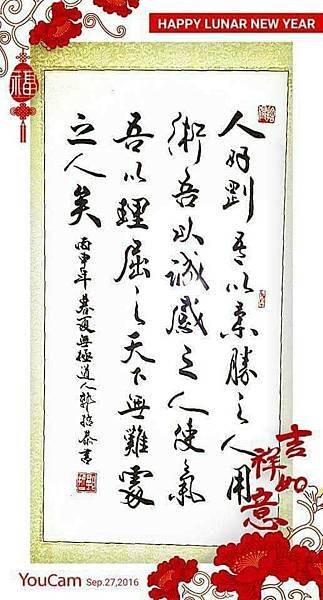 HAPPY LUNAR NEW YEAR
福
人好剛吾以柔勝之人用
術吾以誠感之人使氣
吾以理屈之天下無難處
之人矣
丙申年暮夏無極道人郭哲恭書
吉祥如意
YouCam Sep.27,2016